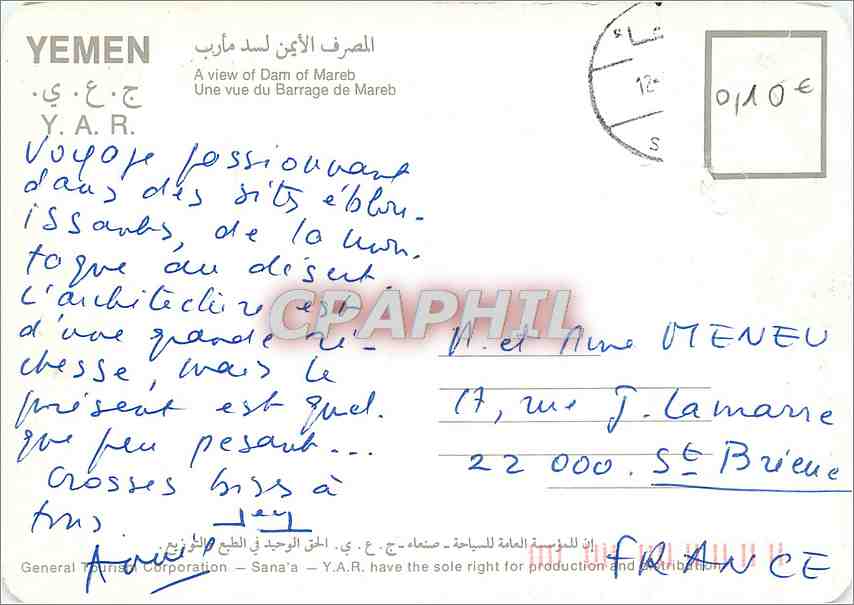 YEMEN
ج. ع. ي.
Y. A. R.
المصرف الأيمن لسد مأرب
A view of Dam of Mareb
Une vue du Barrage de Mareb
12
S
0,10 €
Voyage passionnant
dans des sites éblou-
issants, de la mon-
tagne au désert.
L'architecture est
d'une grande ri-
chesse, mais le
présent est quel-
que peu pesant...
Grosses bises à
tous
CPAPHIL
M. et Mme MENEU
17, rue J. Lamarre
22 000. St Brieuc
FRANCE
إن للمؤسسة العامة للسياحة - صنعاء - ج. ع. ي. الحق الوحيد في الطبع والتوزيع.
General Tourism Corporation — Sana'a — Y.A.R. have the sole right for production and distribution